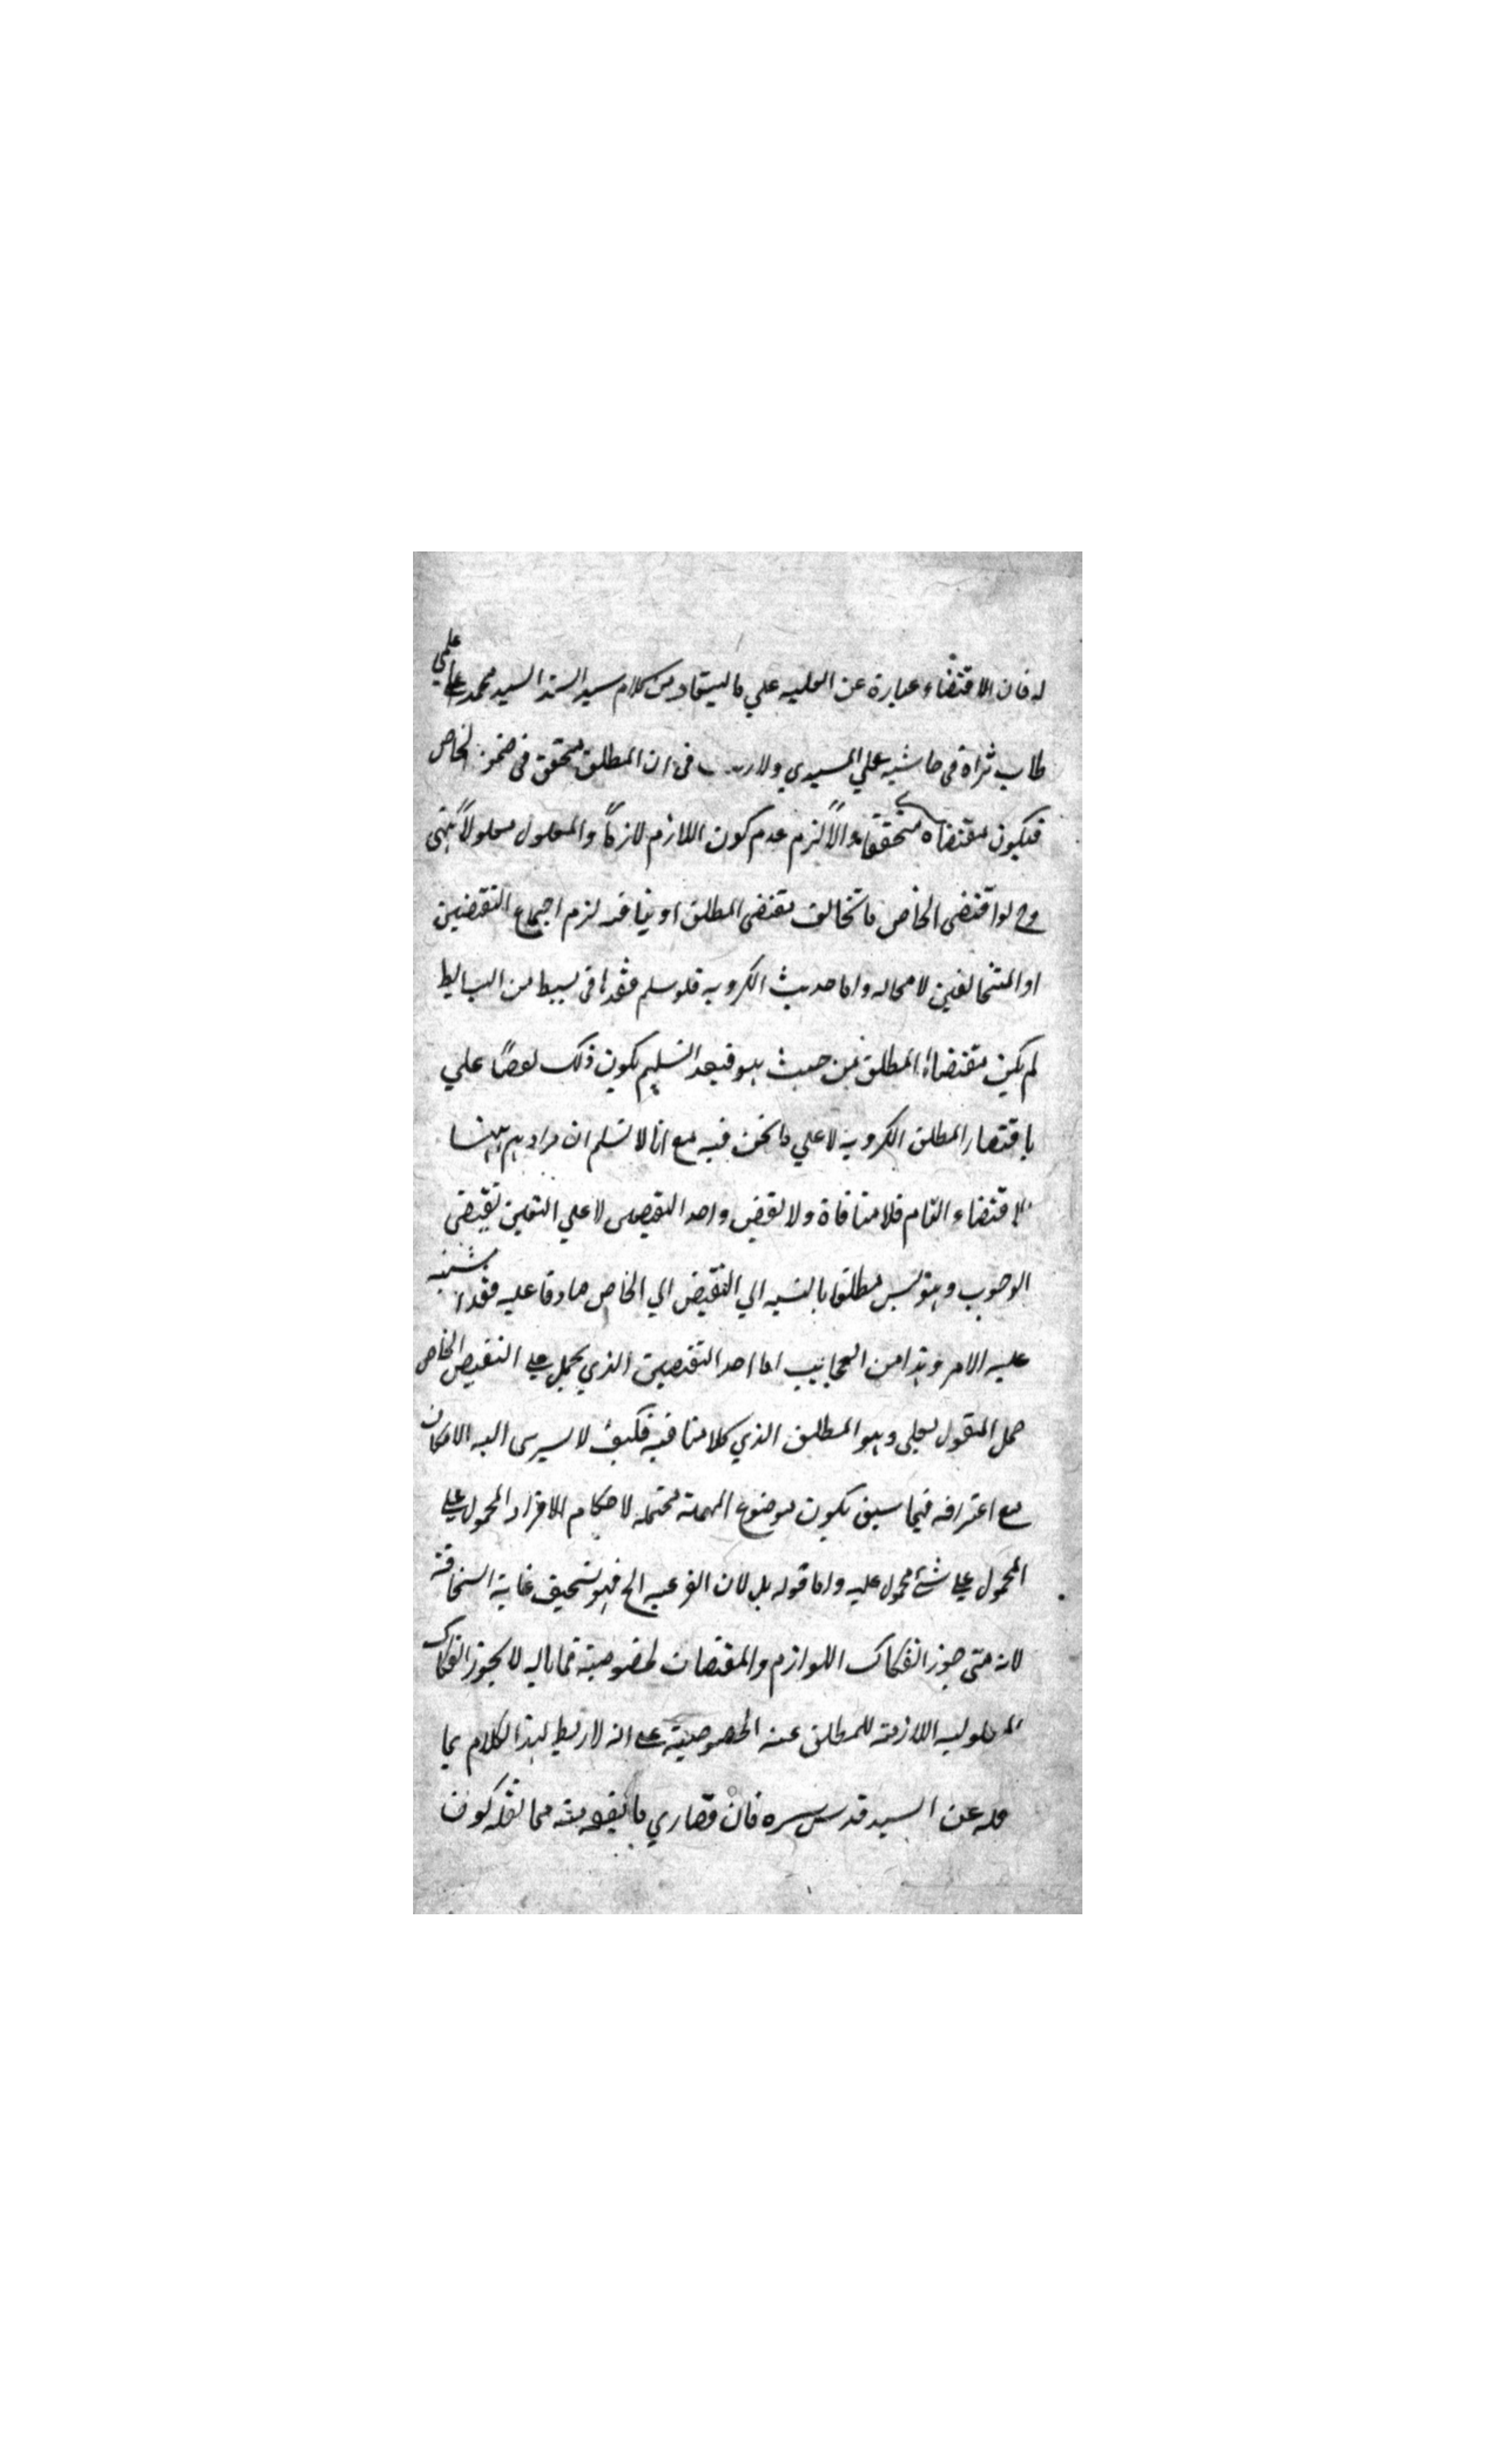 له فان الاقتضاء عبارة عن العليه علي ما ليستفاد من كلام سيد السند السيد محمد علي
طاب ثراه في حاشيه علي الميبدي ولا ريب في ان المطلق متحقق في ضمن الخاص
فيكون مقتضاه متحققا والّا لزم عدم كون اللازم لازمًا والمعلول معلولًا
وح لو اقتضى الخاص ما تخالف مقتضى المطلق او ينافيه لزم اجماع النقيضين
او المتخالفين لا محاله واما حديث الكرويه فلو سلم فقدها في بسيط من البسايط
لم يكن مقتضاه المطلق من حيث هو فبعد التسليم يكون ذلك نقضًا علي
باقتصار المطلق الكرويه لا علي ما نحن فيه مع انا لا نسلم ان مرادهم ههنا
الاقتضاء التام فلا منافاة ولا نقض واحد النقيضين لا علي التعين نقيض
الوجوب وهو ليس مطلقا بالنسبه الي النقيض الي الخاص صادقا عليه فقد اشتبه
عليه الامر وهذا من العجايب اما احد النقيضين الذي يحمل علي النقيض الخاص
حمل المقول بعلي وهو المطلق الذي كلامنا فيه فكيف لا يسرى اليه الامكان
مع اعترافه فيما سبق بكون موضوع المهملة محتمله لاحكام الافراد المحمول علي
المحمول علي شئ محمول عليه واما قوله بل لان الفرعيه الخ فهو سخيف غاية السخافة
لانه متى جوز انفكاك اللوازم والمقتضات لخصوصية فما باله لا يجوز انفكاك
المعلوليه اللازمة للمطلق عنه الخصوصية علي انه لا ربط لهذا الكلام بما
نقله عن السيد قدس سره فان قصاري ما يفهم منه مما نقله كون